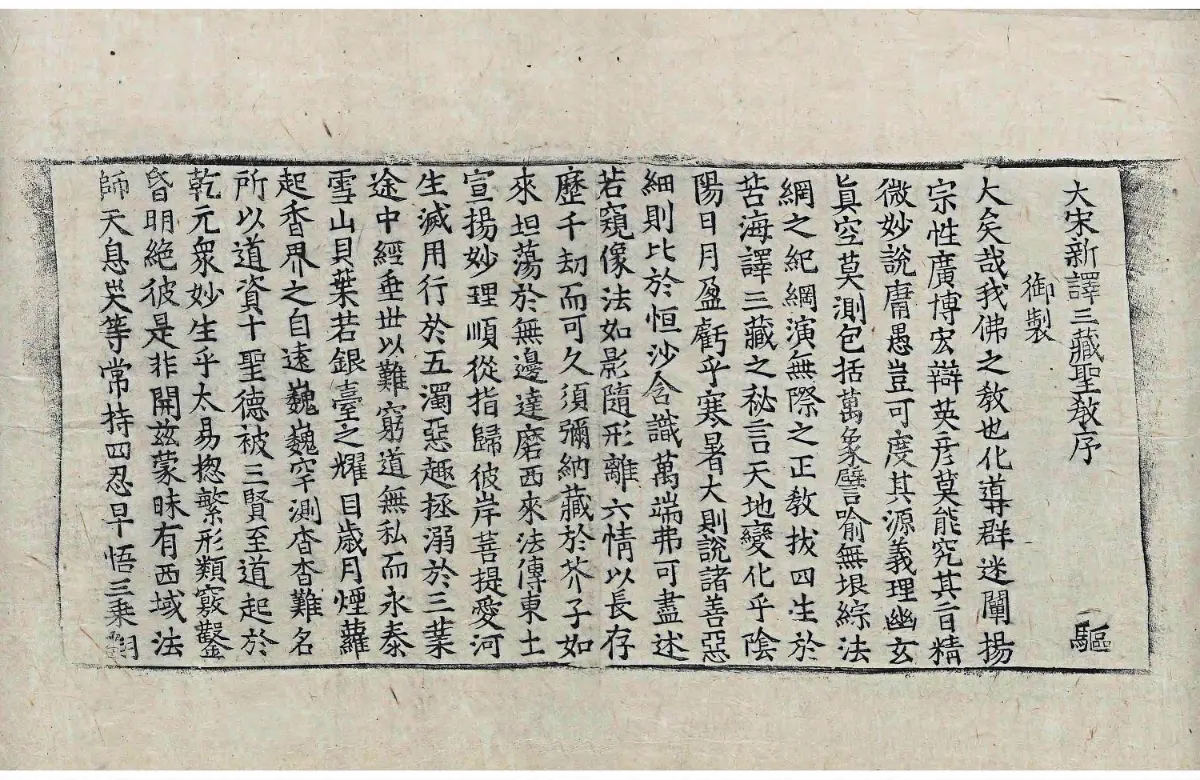 大宋新譯三藏聖教序 驅
御製
大矣哉我佛之教也化導群迷闡揚
宗性廣博宏辯英彦莫能究其旨精
微妙說庸愚豈可度其源義理幽玄
真空莫測包括萬象譬喻無垠綜法
網之紀綱演無際之正教拔四生於
苦海譯三藏之秘言天地變化乎陰
陽日月盈虧乎寒暑大則說諸善惡
細則比於恒沙含識萬端弗可盡述
若窺像法如影隨形離六情以長存
歷千劫而可久須彌納藏於芥子如
來坦蕩於無邊達磨西來法傳東土
宣揚妙理順從指歸彼岸菩提愛河
生滅用行於五濁惡趣拯溺於三業
途中經垂世以難窮道無私而永泰
雪山貝葉若銀臺之耀目歲月煙蘿
起香界之自遠巍巍罕測杳杳難名
所以道資十聖德被三賢至道起於
乾元衆妙生乎太易揔繁形類竅鑿
昏明絕彼是非開兹蒙昧有西域法
師天息災等常持四忍早悟三乘